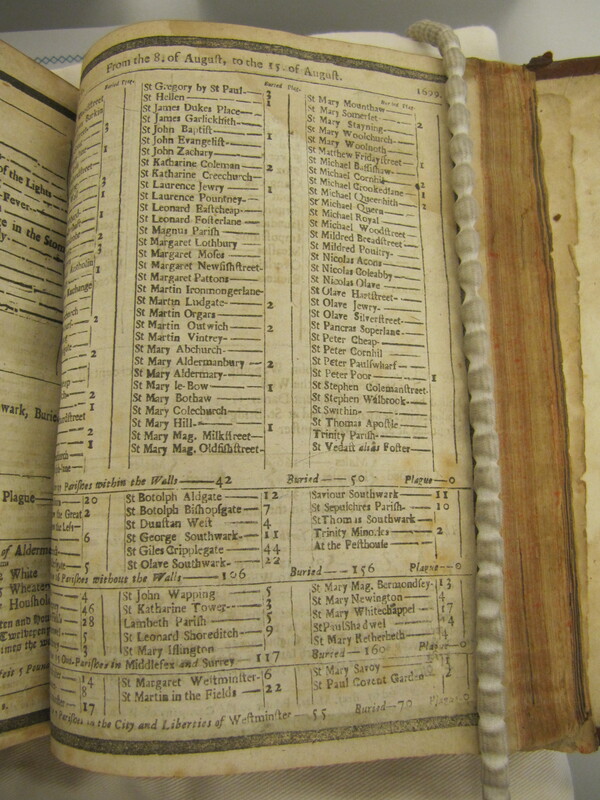 of the Lights
Fever
ge in the Stom
wark, Burie
Plague
of Alderm
White
Wheaten
Houshold
From the 8. of Auguſt, to the 15. of Auguſt.
1699.
Buried Plag.
St Gregory by St Paul 3
St Hellen 1
St James Dukes Place
St James Garlickhith
St John Baptiſt 1
St John Evangeliſt
St John Zachary
St Katharine Coleman 2
St Katharine Creechurch
St Laurence Jewry 1
St Laurence Pountney
St Leonard Eaſtcheap
St Leonard Foſterlane
St Magnus Pariſh
St Margaret Lothbury
St Margaret Moſes
St Margaret Newfiſhſtreet
St Margaret Pattons
St Martin Ironmongerlane
St Martin Ludgate 2
St Martin Orgars
St Martin Outwich 2
St Martin Vintrey
St Mary Abchurch
St Mary Aldermanbury 2
St Mary Aldermary
St Mary le-Bow 1
St Mary Bothaw
St Mary Colechurch
St Mary Hill 1
St Mary Mag. Milkſtreet
St Mary Mag. Oldfiſhſtreet
Buried Plag.
St Mary Mounthaw
St Mary Somerſet 2
St Mary Stayning
St Mary Woolchurch
St Mary Woolnoth
St Matthew Fridayſtreet 1
St Michael Baſſiſhaw
St Michael Cornhil 2
St Michael Crookedlane 1
St Michael Queenhith 2
St Michael Quern
St Michael Royal
St Michael Woodſtreet
St Mildred Breadſtreet
St Mildred Poultry
St Nicolas Acons
St Nicolas Coleabby
St Nicolas Olave
St Olave Hartſtreet
St Olave Jewry
St Olave Silverſtreet
St Pancras Soperlane
St Peter Cheap
St Peter Cornhil
St Peter Paulſwharf
St Peter Poor 1
St Stephen Colemanſtreet
St Stephen Walbrook
St Swithin
St Thomas Apoſtle
Trinity Pariſh
St Vedaſt alias Foſter
Pariſhes within the Walls 42 Buried 50 Plague 0
20
the Great 2
the Leſs
6
5
St Botolph Aldgate 12
St Botolph Biſhopſgate 7
St Dunſtan Weſt 4
St George Southwark 11
St Giles Cripplegate 44
St Olave Southwark 22
Saviour Southwark 11
St Sepulchres Pariſh 10
St Thomas Southwark
Trinity Minories 2
At the Peſthouſe
Pariſhes without the Walls 106 Buried 156 Plague 0
4
26
28
5
3
St John Wapping 5
St Katharine Tower 3
Lambeth Pariſh 5
St Leonard Shoreditch 9
St Mary Iſlington
St Mary Mag. Bermondſey 13
St Mary Newington 4
St Mary Whitechappel 17
St Paul Shadwel 4
St Mary Retherheth 4
Out-Pariſhes in Middleſex and Surrey 117 Buried 160 Plague 0
14
8
17
St Margaret Weſtminſter 6
St Martin in the Fields 22
St Mary Savoy
St Paul Covent Garden 2
Pariſhes in the City and Liberties of Weſtminſter 55 Buried 70 Plague 0